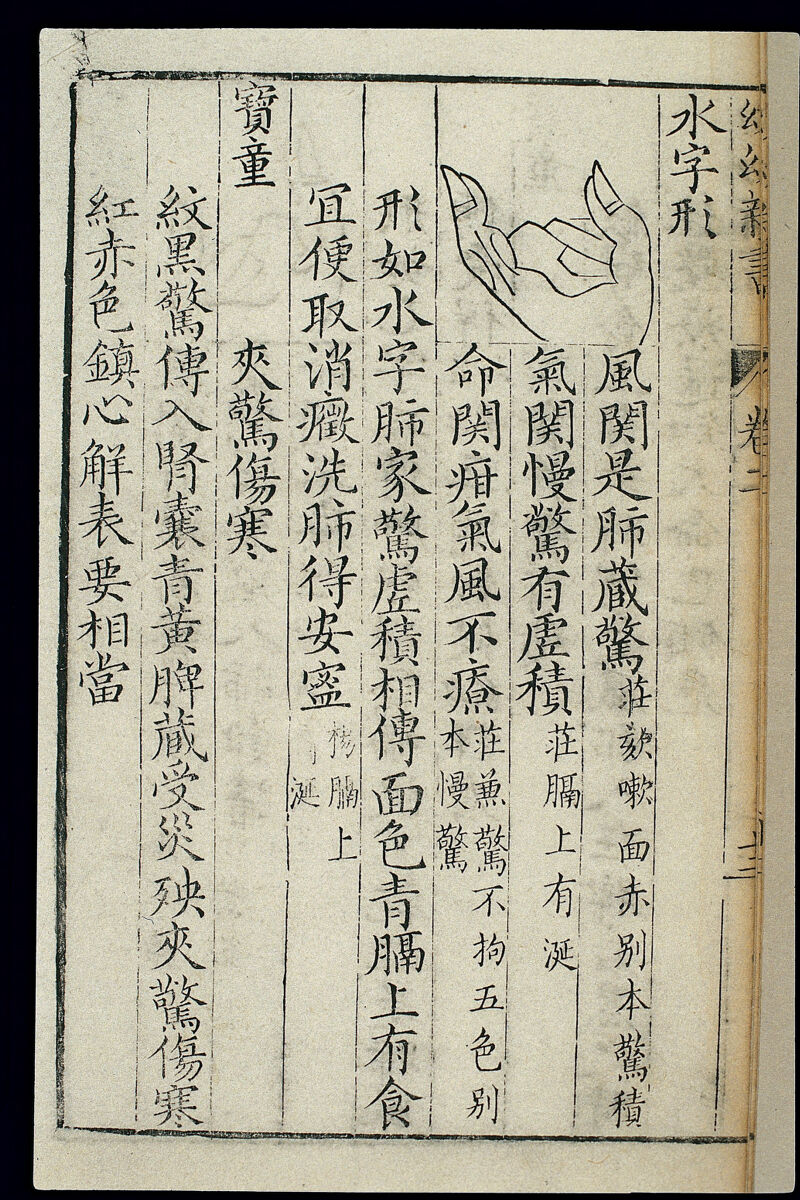 幼幼新書 卷二 十三
水字形
風関是肺蔵驚 莊欬嗽面赤别本驚積
氣関慢驚有虗積 莊膈上有涎
命関疳氣風不療 莊𠔥驚不拘五色别
本慢驚
形如水字肺家驚虗積相傳面色青膈上有食
冝便取消癥洗肺得安寧 膈上
涎
寶童 夾驚傷寒
紋黒驚傳入腎囊青黄脾蔵受災殃夾驚傷寒
紅赤色鎮心解表要相當